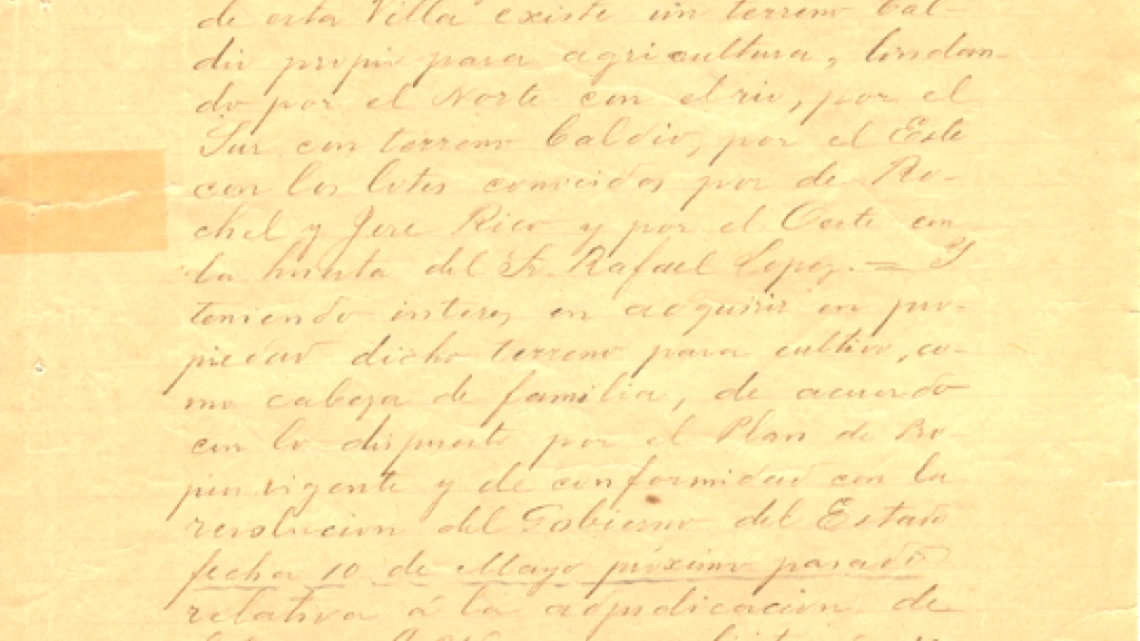 de esta Villa existe un terreno bal-
dio propio para agricultura, lindan-
do por el Norte con el rio, por el
Sur con terreno baldio, por el Este
con los lotes conocidos por de Ro-
chel y Jere Rico y por el Oeste con
la huerta del Sr. Rafael Lopez. = Y
teniendo interes en adquirir en pro-
piedad dicho terreno para cultivo, co-
mo cabeza de familia, de acuerdo
con lo dispuesto por el Plan de Pro
pios vigente y de conformidad con la
resolucion del Gobierno del Estado
fecha 10 de Mayo próximo pasado
relativa á la adjudicacion de